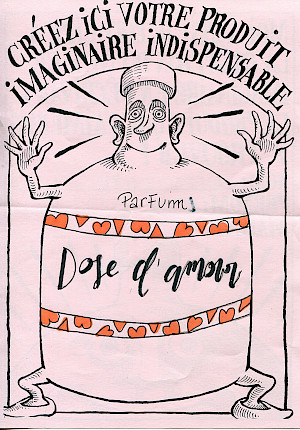 CRÉEZ ICI VOTRE PRODUIT
IMAGINAIRE INDISPENSABLE
Parfum
Dose d'amour